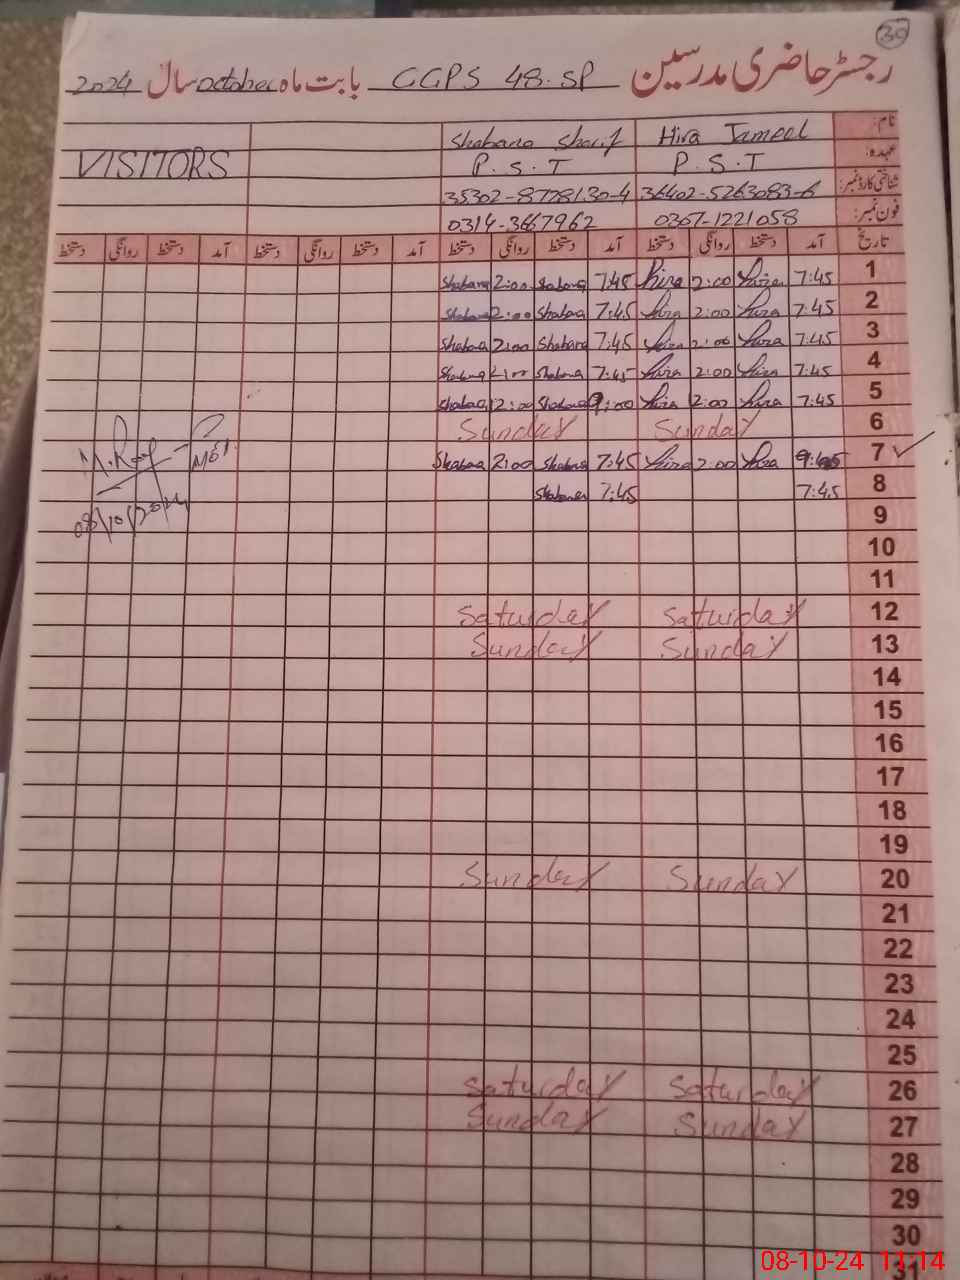 30
رجسٹر حاضری مدرسین GGPS 48.SP بابت ماه October سال 2024
نام: Hira Jameel Shabana Sharif
عہدہ: P.S.T P.S.T VISITORS
شناختی کارڈ نمبر: 36402-5263083-6 35302-8778130-4
فون نمبر: 0367-1221058 0314-3667962
تاریخ آمد دستخط روانگی دستخط آمد دستخط روانگی دستخط آمد دستخط روانگی دستخط آمد دستخط روانگی دستخط
1 7:45 Hira 2:00 Hira 7:45 Shabana 2:00 Shabana
2 7:45 Hira 2:00 Hira 7:45 Shabana 2:00 Shabana
3 7:45 Hira 2:00 Hira 7:45 Shabana 2:00 Shabana
4 7:45 Hira 2:00 Hira 7:45 Shabana 2:00 Shabana
5 7:45 Hira 2:00 Hira Shabana 2:00 Shabana
6 Sunday Sunday
7 Hira 2:00 Hira 7:45 Shabana 2:00 Shabana
8 7:45 7:45 Shabana
08/10/2024
9
10
11
12 Saturday Saturday
13 Sunday Sunday
14
15
16
17
18
19
20 Sunday Sunday
21
22
23
24
25
26 Saturday Saturday
27 Sunday Sunday
28
29
30
31
08-10-24 11:14